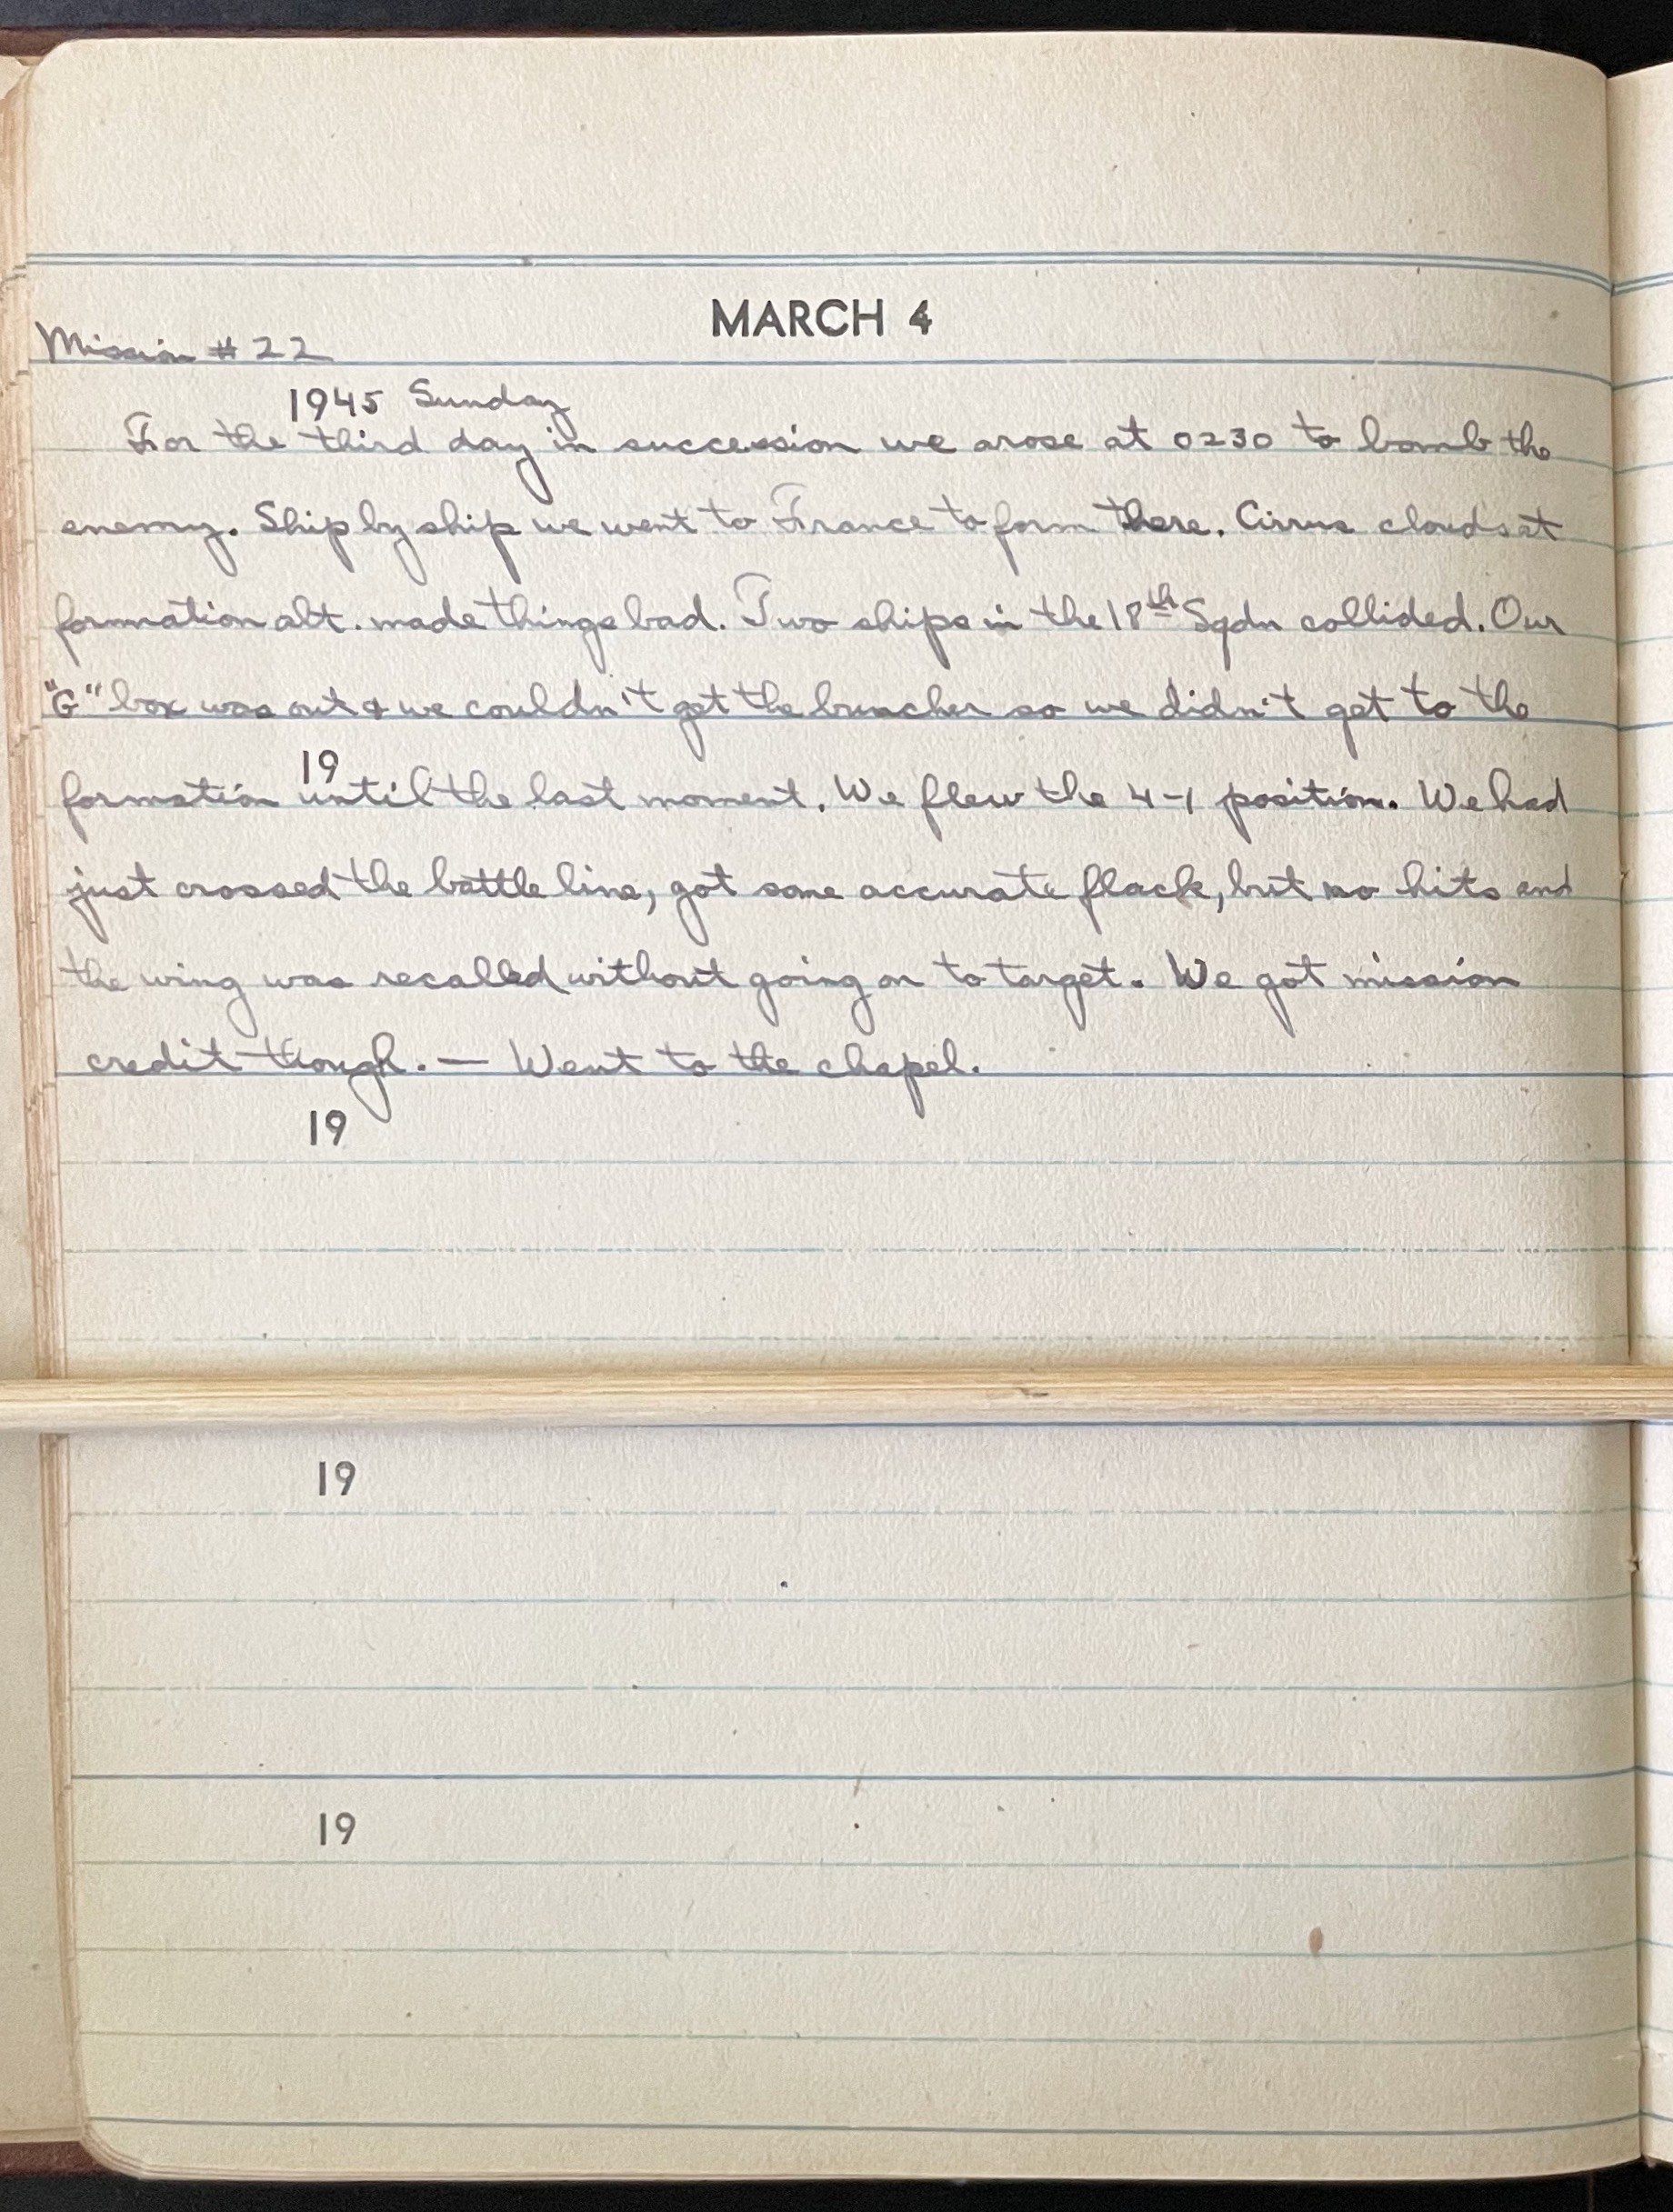 MARCH 4
Mission # 22
1945 Sunday
For the third day in succession we arose at 0230 to bomb the
enemy. Ship by ship we went to France to form there. Cirrus clouds at
formation alt. made things bad. Two ships in the 18th Sqdn collided. Our
"G" box was out & we couldn't get the buncher so we didn't get to the
19
formation until the last moment. We flew the 4-1 position. We had
just crossed the battle line, got some accurate flack, but no hits and
the wing was recalled without going on to target. We got mission
credit though. — Went to the chapel.
19
19
19